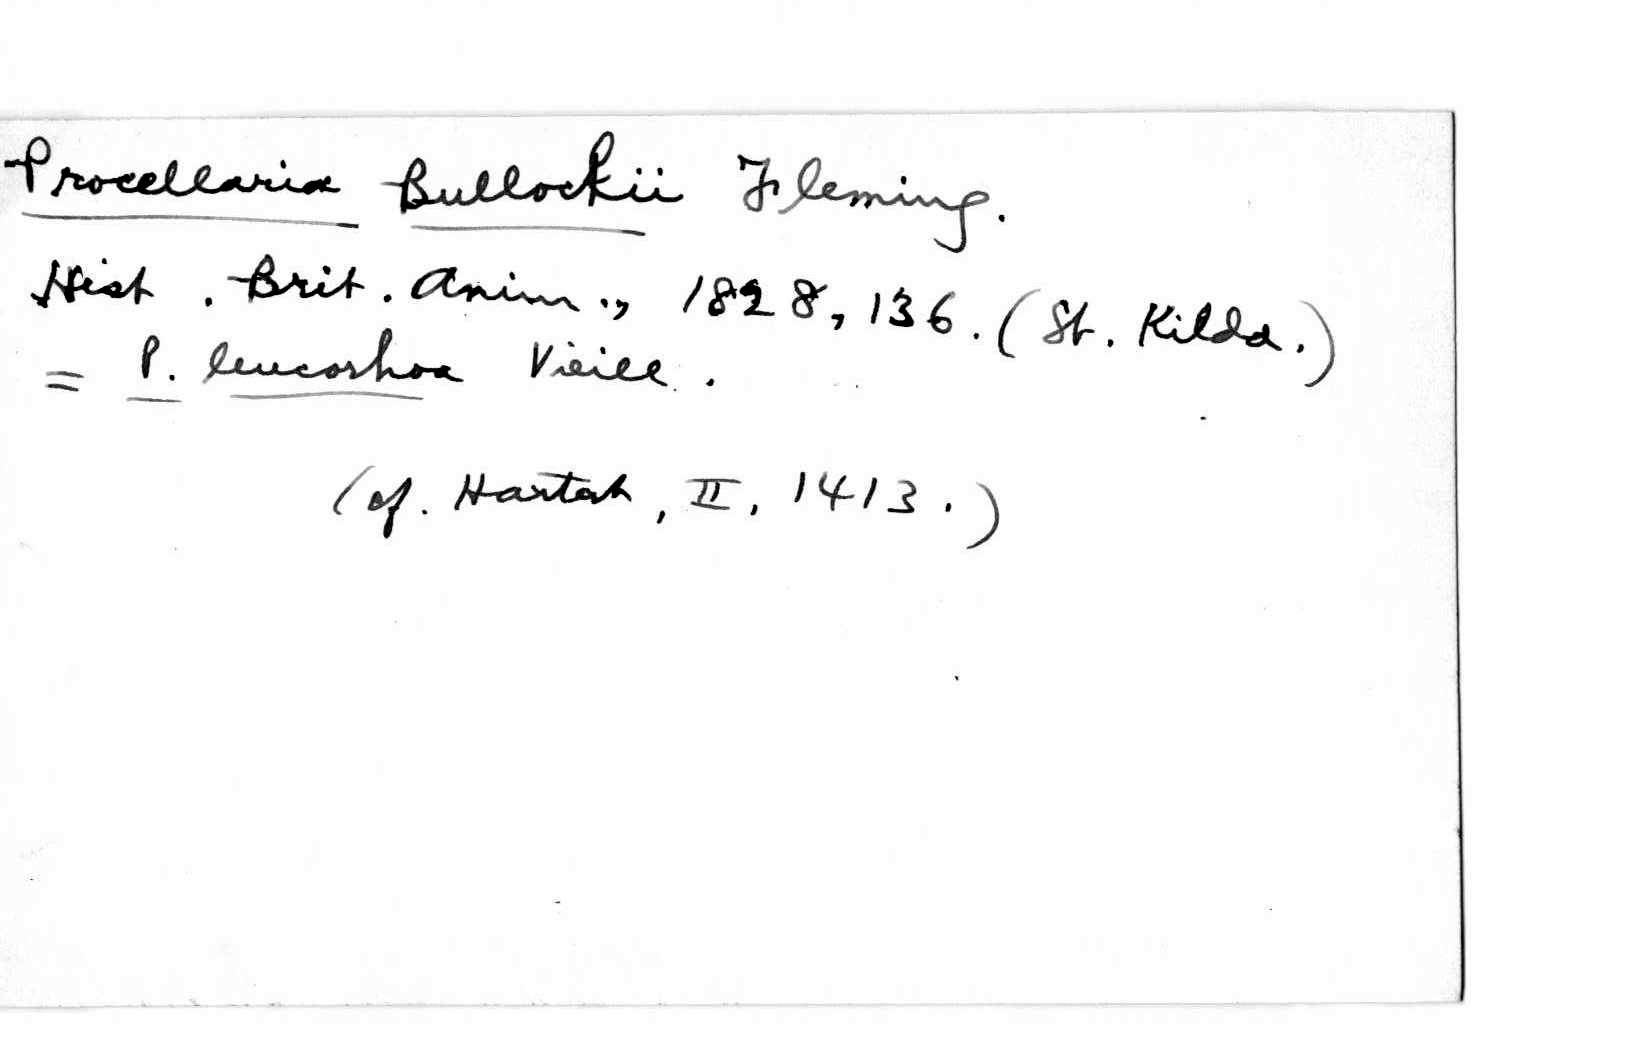 Procellaria Bullockii Fleming.
Hist. Brit. Anim., 1828, 136. (St. Kilda.)
= P. leucorhoa Vieill.
(cf. Hartert, II, 1413.)